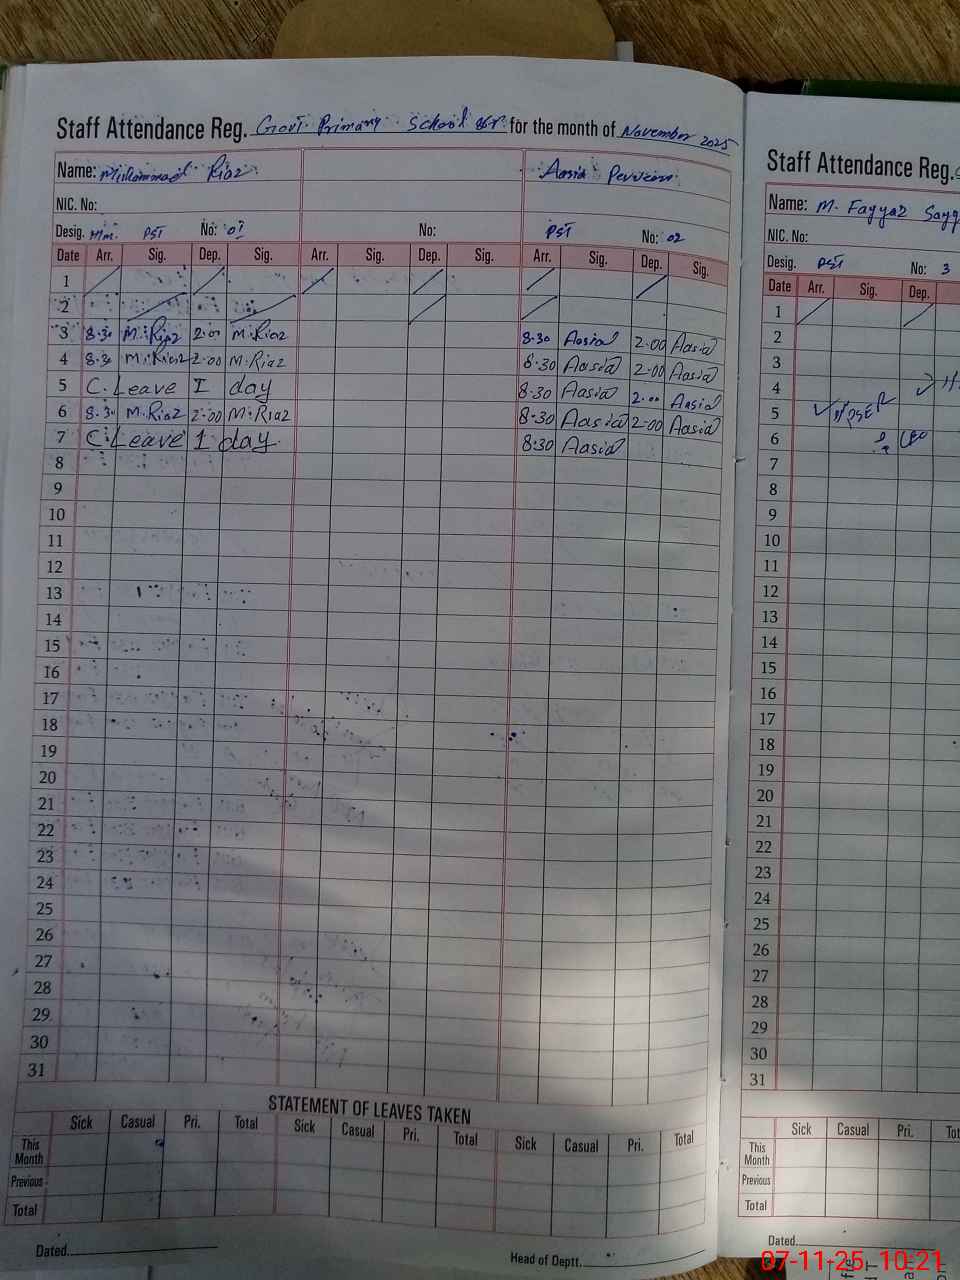 Staff Attendance Reg. Govt. Primary School for the month of November 2025
Name: Muhammad Riaz Aasia Perveen
NIC. No:
Desig. PST No: 01 No: PST No: 02
Date Arr. Sig. Dep. Sig. Arr. Sig. Dep. Sig. Arr. Sig. Dep. Sig.
1
2
3 8.30 M.Riaz 2.00 M.Riaz 8.30 Aasia 2.00 Aasia
4 8.30 M.Riaz 2.00 M.Riaz 8.30 Aasia 2.00 Aasia
5 C.Leave I day 8.30 Aasia 2.00 Aasia
6 8.30 M.Riaz 2.00 M.Riaz 8.30 Aasia 2.00 Aasia
7 C.Leave 1 day 8.30 Aasia
8
9
10
11
12
13
14
15
16
17
18
19
20
21
22
23
24
25
26
27
28
29
30
31
STATEMENT OF LEAVES TAKEN
Sick Casual Pri. Total Sick Casual Pri. Total Sick Casual Pri. Total
This Month
Previous
Total
Dated. Head of Deptt.
Staff Attendance Reg.
Name: M. Fayyaz
NIC. No:
Desig. PST No: 3
Date Arr. Sig. Dep.
1
2
3
4
5
6
7
8
9
10
11
12
13
14
15
16
17
18
19
20
21
22
23
24
25
26
27
28
29
30
31
Sick Casual Pri.
This Month
Previous
Total
Dated.
07-11-25 10:21